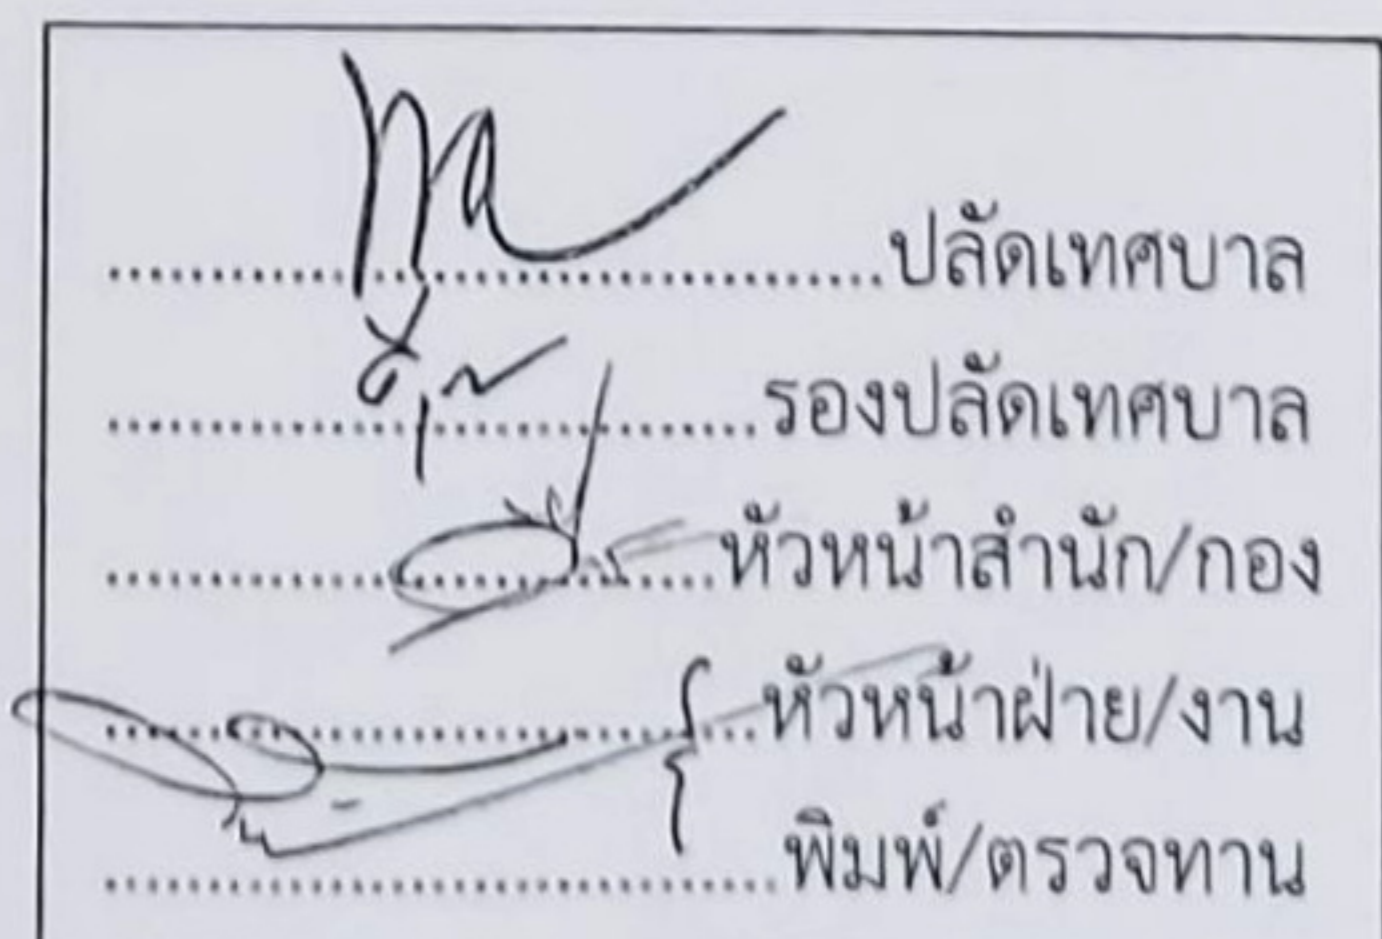 ........................................ปลัดเทศบาล
.................................รองปลัดเทศบาล
..............................หัวหน้าสำนัก/กอง
.................................หัวหน้าฝ่าย/งาน
..................................พิมพ์/ตรวจทาน